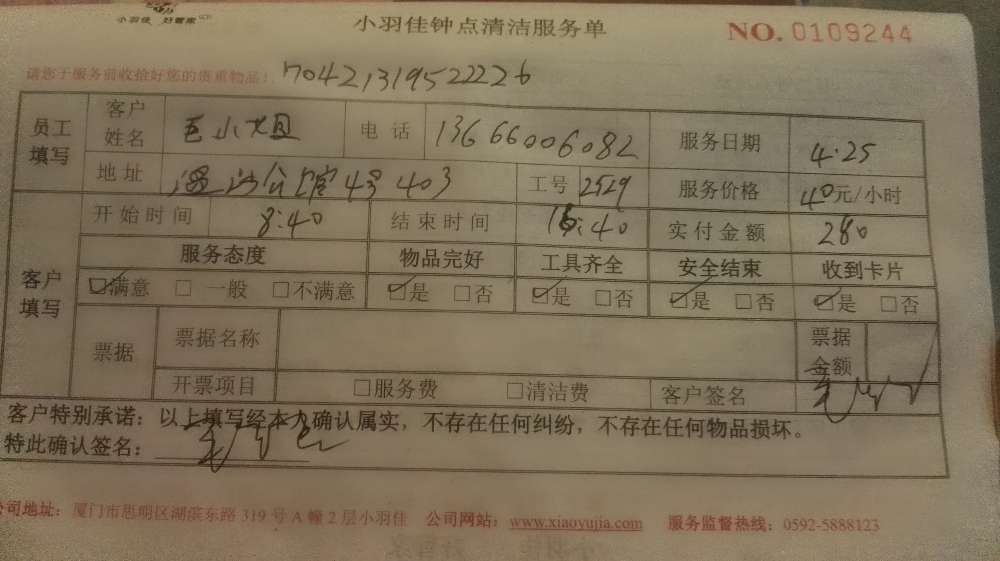 小羽佳 好管家
小羽佳钟点清洁服务单
NO. 0109244
请您于服务前收拾好您的贵重物品！
70421319522226
员工填写 客户姓名 小姐 电话 13666006082 服务日期 4.25
地址 公馆4号403 工号 2529 服务价格 40元/小时
客户填写 开始时间 8:40 结束时间 15:40 实付金额 280
服务态度 物品完好 工具齐全 安全结束 收到卡片
☑满意 □一般 □不满意 ☑是 □否 ☑是 □否 ☑是 □否 ☑是 □否
票据 票据名称 票据金额
开票项目 □服务费 □清洁费 客户签名
客户特别承诺：以上填写经本人确认属实，不存在任何纠纷，不存在任何物品损坏。
特此确认签名：
公司地址：厦门市思明区湖滨东路 319 号 A 幢 2 层小羽佳 公司网站：www.xiaoyujia.com 服务监督热线：0592-5888123